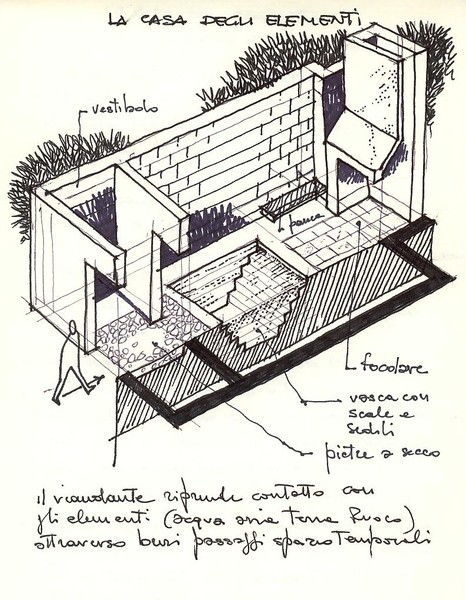 LA CASA DEGLI ELEMENTI
vestibolo
panca
focolare
vasca con
scale e
sedili
pietre a secco
il viandante riprende contatto con
gli elementi (acqua aria terra fuoco)
attraverso passaggi spazio temporali